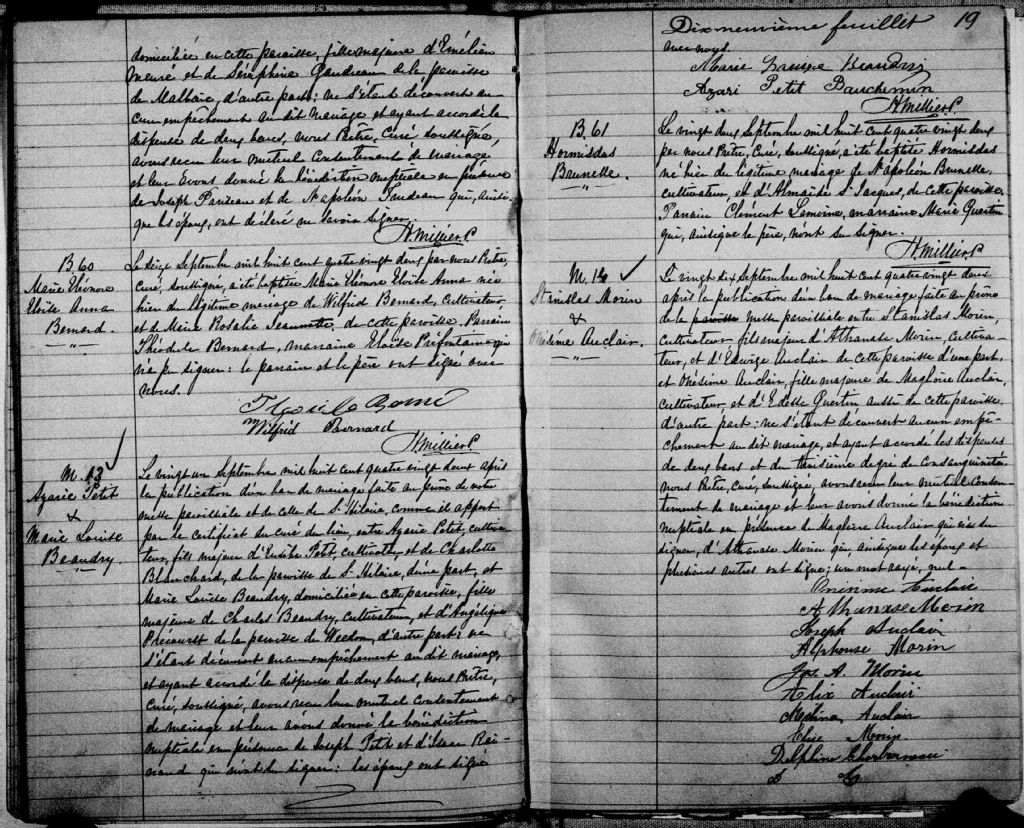 domiciliée en cette paroisse, fille majeure d'Emélien
et de Séraphine Gaudreau de la paroisse
de Malbaie, d'autre part; ne s'étant découvert au
cun empêchement au dit mariage et ayant accordé la
dispense de deux bancs, nous Prêtre, Curé, soussigné,
avons reçu leur mutuel Consentement de mariage
et leur avons donné la bénédiction nuptiale en présence
de Joseph et de Napoléon qui, ainsi
que les époux, ont déclaré ne savoir signer.
H. Millier P.
B. 60
Marie Eléonore
Eloïse Anna
Bernard.
Le seize Septembre mil huit cent quatre vingt deux par nous Prêtre,
curé, soussigné, a été baptisée Marie Eléonore Eloïse Anna née
hier du légitime mariage de Wilfrid Bernard, cultivateur
et de Marie Rosalie Jeannotte, de cette paroisse. Parrain
Théophile Bernard, marraine Eloïse Préfontaine qui
n'a pu signer: le parrain et le père ont signé avec
nous.
Wilfrid Bernard
H. Millier P.
M. 13
Azarie Petit
&
Marie Louise
Beaudry.
Le vingt un Septembre mil huit cent quatre vingt deux après
la publication d'un ban de mariage faite au prône de notre
messe paroissiale et de celle de St Hilaire, comme il appert
par le certificat du curé du lieu, entre Azarie Petit, cultiva-
teur, fils majeur d'Eusèbe Petit, cultivateur et de Charlotte
Blanchard, de la paroisse de St Hilaire, d'une part, et
Marie Louise Beaudry, domiciliée en cette paroisse, fille
majeure de Charles Beaudry, cultivateur, et d'Angélique
Précourt de la paroisse de Weedon, d'autre part; ne
s'étant découvert aucun empêchement au dit mariage,
et ayant accordé la dispense de deux bans, nous Prêtre,
Curé, soussigné, avons reçu leur mutuel Consentement
de mariage et leur avons donné la bénédiction
nuptiale en présence de Joseph Petit et d'Isaac Rai-
nand qui n'ont su signer: les époux ont signé
Dix neuvième feuillet 19
avec nous.
Marie Louise Beaudry
Azari Petit Bauchemin
H. Millier P.
B. 61
Hormisdas
Brunelle.
Le vingt deux Septembre mil huit cent quatre vingt deux
par nous Prêtre, Curé, soussigné, a été baptisé Hormisdas
né hier du légitime mariage de Napoléon Brunelle,
cultivateur, et d'Almaïde St Jacques, de cette paroisse,
Parrain Clément Lemoine, marraine Marie Guertin
qui, ainsi que le père, n'ont su signer.
H. Millier P.
M. 14
Stanislas Morin
&
Onésime Auclair.
Le vingt six, Septembre mil huit cent quatre vingt deux
après la publication d'un ban de mariage faite au prône
de la paroisse messe paroissiale entre Stanislas Morin,
cultivateur, fils majeur d'Athanase Morin, cultiva-
teur, et d'Edwige Auclair de cette paroisse d'une part,
et Onésime Auclair, fille majeure de Magloire Auclair,
cultivateur, et d'Edesse Guertin aussi de cette paroisse
d'autre part; ne s'étant découvert aucun empê-
chement au dit mariage, et ayant accordé les dispenses
de deux bans et du troisième degré de consanguinité,
nous Prêtre, Curé, soussigné, avons reçu leur mutuel Consen-
tement de mariage et leur avons donné la bénédiction
nuptiale en présence de Magloire Auclair qui n'a su
signer, d'Athanase Morin qui, ainsi que les époux et
plusieurs autres ont signé; un mot rayé, nul-
Onésime Auclair
Athanase Morin
Joseph Auclair
Alphonse Morin
Jos. A. Morin
Alix Auclair
Mélina Auclair
Elise Morin
Delphine